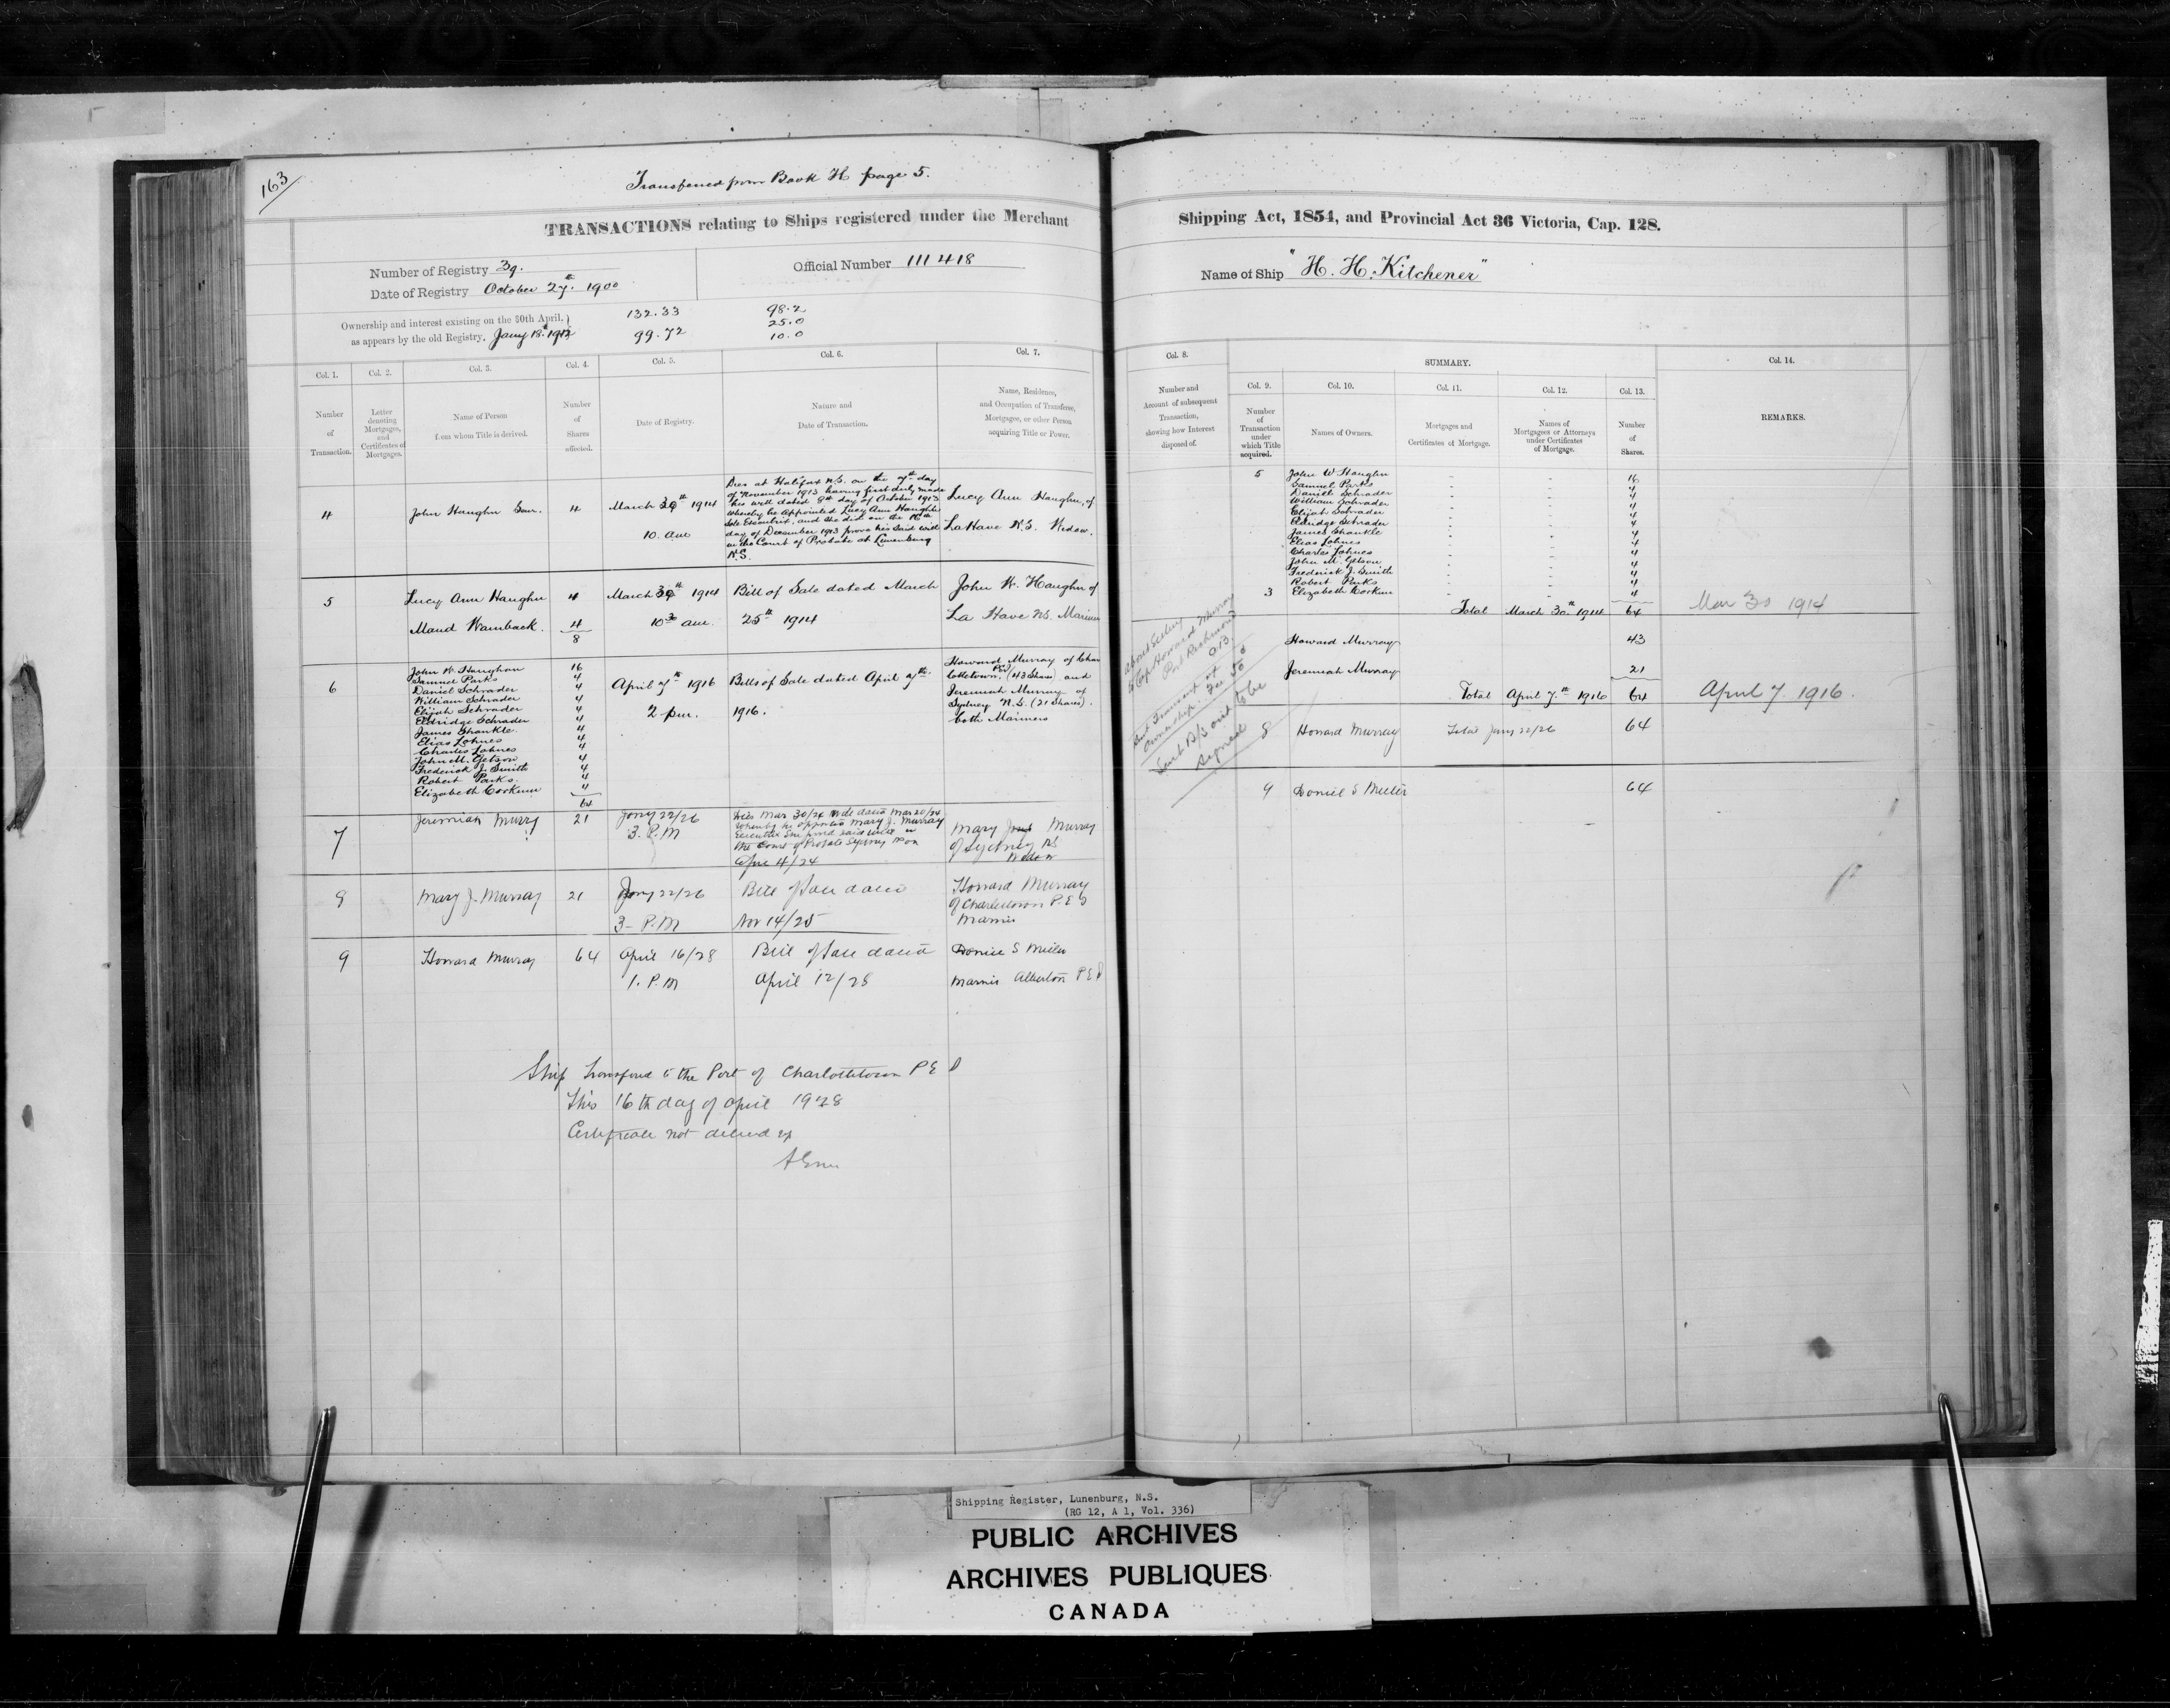 163
Transferred from Book H page 5.
TRANSACTIONS relating to Ships registered under the Merchant
Shipping Act, 1854, and Provincial Act 36 Victoria, Cap. 128.
Number of Registry 39.
Official Number 111418
Date of Registry October 27th 1900
Name of Ship "H. H. Kitchener"
Ownership and interest existing on the 30th April,
as appears by the old Registry, Jany 18th 1912
132.33
99.72
98.2
25.0
10.0
Col. 1.
Number
of
Transaction.
Col. 2.
Letter
denoting
Mortgages,
and
Certificates of
Mortgages.
Col. 3.
Name of Person
from whom Title is derived.
Col. 4.
Number
of
Shares
affected.
Col. 5.
Date of Registry.
Col. 6.
Nature and
Date of Transaction.
Col. 7.
Name, Residence,
and Occupation of Transferee,
Mortgagee, or other Person
acquiring Title or Power.
4
John Haughn Senr.
4
March 30th 1914
10. am
Dies at Halifax N.S. on the 7th day
of November 1913 having first duly made
his will dated 8th day of October 1913
whereby he appointed Lucy Ann Haughn
Sole Executrix, and she did on the 16th
day of December 1913 prove his said will
in the Court of Probate at Lunenburg
N.S.
Lucy Ann Haughn, of
LaHave N.S. Widow.
5
Lucy Ann Haughn 4
Maud Wamback. 4
8
March 30th 1914
10 30 am.
Bill of Sale dated March
25th 1914
John W. Haughn of
La Have N.S. Mariner
6
John W. Haughn 16
Samuel Parks 4
Daniel Schrader 4
William Schrader 4
Elijah Schrader 4
Eldridge Schrader 4
James Shankle. 4
Elias Lohnes 4
Charles Lohnes 4
John M. Getson 4
Frederick J. Smith 4
Robert Parks. 4
Elizabeth Corkum 4
64
April 7th 1916
2 pm.
Bills of Sale dated April 7th
1916.
Howard Murray of Char
lottetown, PEI (43 Shares) and
Jeremiah Murray of
Sydney N.S. (21 Shares).
both Mariners
7
Jeremiah Murray
21
Jany 22/26
3. P.M
Dies Mar 30/24 Will dated Mar 20/24
whereby he appointed Mary J. Murray
Executrix She proved said will in
the Court of Probate Sydney NS on
April 4/24
Mary Murray
of Sydney NS
Widow
8
Mary J. Murray
21
Jany 22/26
3- P.M
Bill of Sale dated
Nov 14/25
Howard Murray
of Charlottetown P.E.I
Mariner
9
Howard Murray
64
April 16/28
1. P.M
Bill of Sale dated
April 12/28
Daniel S Miller
Mariner Alberton P E I
Ship transferred to the Port of Charlottetown P E I
This 16th day of April 1928
Certificate not delivered up
Col. 8.
Number and
Account of subsequent
Transaction,
showing how Interest
disposed of.
SUMMARY.
Col. 9.
Number
of
Transaction
under
which Title
acquired.
Col. 10.
Names of Owners.
Col. 11.
Mortgages and
Certificates of Mortgage.
Col. 12.
Names of
Mortgagees or Attorneys
under Certificates
of Mortgage.
Col. 13.
Number
of
Shares.
Col. 14.
REMARKS.
5 John W Haughn 16
Samuel Parks 4
Daniel Schrader 4
William Schrader 4
Elijah Schrader 4
Eldridge Schrader 4
James Shankle 4
Elias Lohnes 4
Charles Lohnes 4
John M. Getson 4
Frederick J. Smith 4
Robert Parks 4
3 Elizabeth Corkum 4
Total March 30th 1914 64
Mar 30 1914
Howard Murray 43
Jeremiah Murray 21
Total April 7th 1916 64
April 7 1916.
8 Howard Murray Total Jany 22/26 64
9 Daniel S Miller 64
to Capt Howard Murray
ownership.
Sent B/S out to be
signed
Shipping Register, Lunenburg, N.S.
(RG 12, A 1, Vol. 336)
PUBLIC ARCHIVES
ARCHIVES PUBLIQUES
CANADA